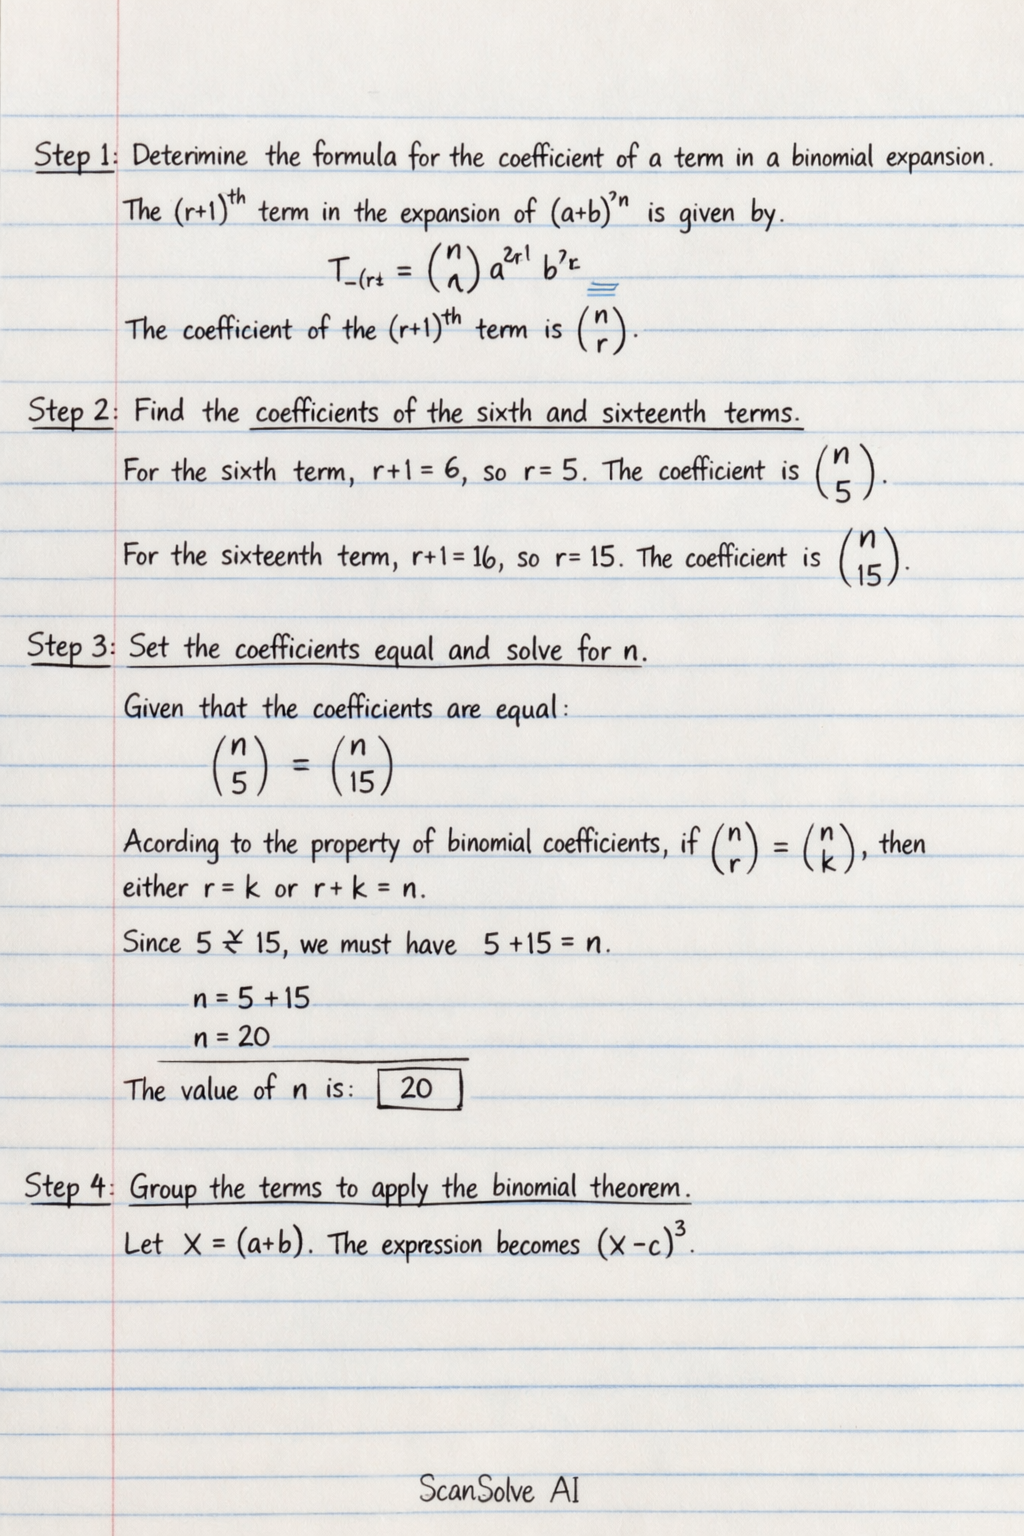 Step 1: Deterimine the formula for the coefficient of a term in a binomial expansion.
The (r+1)^th term in the expansion of (a+b)^?n is given by.
T_-(r± = (n n) a^2r1 b^?r
The coefficient of the (r+1)^th term is (n r).
Step 2: Find the coefficients of the sixth and sixteenth terms.
For the sixth term, r+1 = 6, so r = 5. The coefficient is (n 5).
For the sixteenth term, r+1 = 16, so r = 15. The coefficient is (n 15).
Step 3: Set the coefficients equal and solve for n.
Given that the coefficients are equal:
(n 5) = (n 15)
Acording to the property of binomial coefficients, if (n r) = (n k), then
either r = k or r + k = n.
Since 5 15, we must have 5 +15 = n.
n = 5 +15
n = 20
The value of n is: 20
Step 4: Group the terms to apply the binomial theorem.
Let X = (a+b). The expression becomes (X -c)^3.
ScanSolve AI